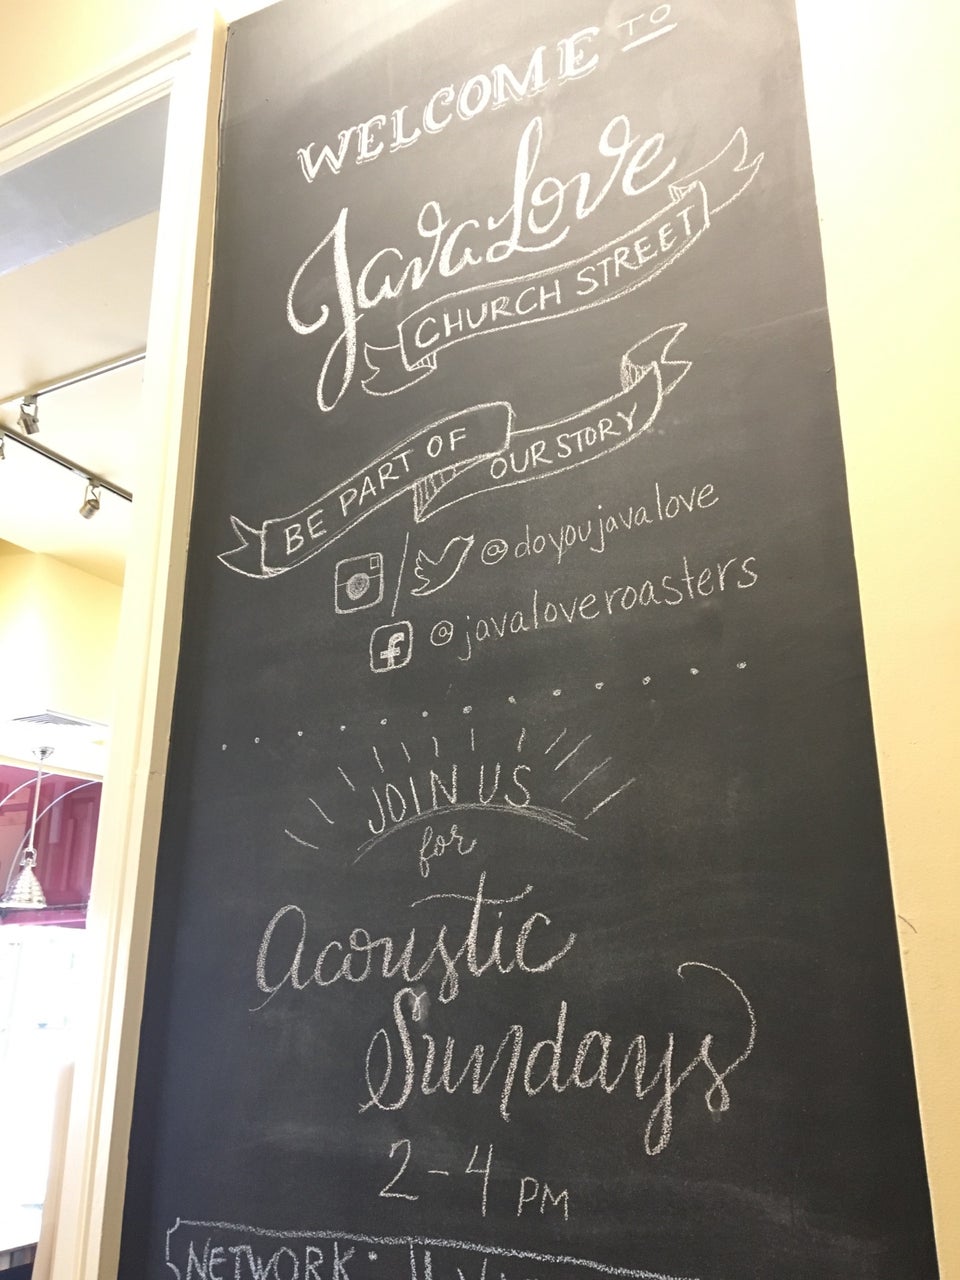 WELCOME TO
JavaLove
CHURCH STREET
BE PART OF
OUR STORY
@doyoujavalove
@javaloveroasters
JOIN US
for
Acoustic
Sundays
2-4 PM
NETWORK: